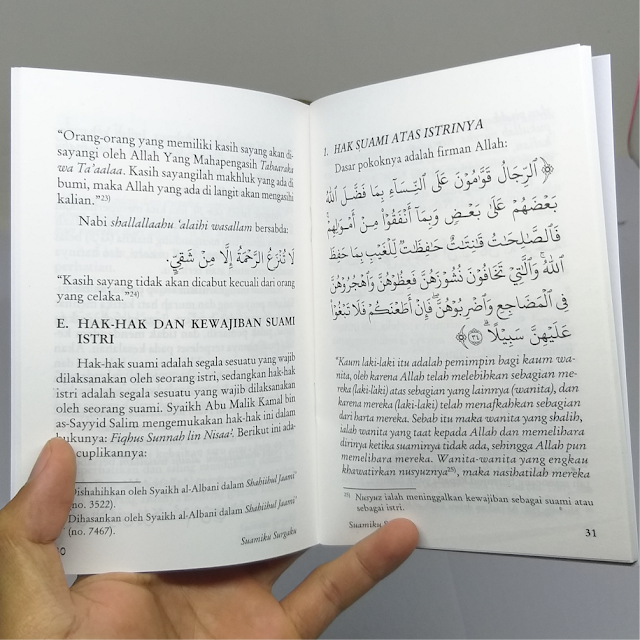 “Orang-orang yang memiliki kasih sayang akan di-
sayangi oleh Allah Yang Mahapengasih Tabaaraka
wa Ta’aalaa. Kasih sayangilah makhluk yang ada di
bumi, maka Allah yang ada di langit akan mengasihi
kalian.”²³⁾
Nabi shallallaahu ‘alaihi wasallam bersabda:
لَا تُنْزَعُ الرَّحْمَةُ إِلَّا مِنْ شَقِيٍّ.
“Kasih sayang tidak akan dicabut kecuali dari orang
yang celaka.”²⁴⁾
E. HAK-HAK DAN KEWAJIBAN SUAMI
ISTRI
Hak-hak suami adalah segala sesuatu yang wajib
dilaksanakan oleh seorang istri, sedangkan hak-hak
istri adalah segala sesuatu yang wajib dilaksanakan
oleh seorang suami. Syaikh Abu Malik Kamal bin
as-Sayyid Salim mengemukakan hak-hak ini dalam
bukunya: Fiqhus Sunnah lin Nisaa’. Berikut ini ada-
cuplikannya:
Dishahihkan oleh Syaikh al-Albani dalam Shahiihul Jaami’
(no. 3522).
Dihasankan oleh Syaikh al-Albani dalam Shahiihul Jaami’
(no. 7467).
Suamiku Surgaku
1. HAK SUAMI ATAS ISTRINYA
Dasar pokoknya adalah firman Allah:
﴿ ٱلرِّجَالُ قَوَّٰمُونَ عَلَى ٱلنِّسَآءِ بِمَا فَضَّلَ ٱللَّهُ
بَعْضَهُمْ عَلَىٰ بَعْضٍ وَبِمَآ أَنفَقُوا۟ مِنْ أَمْوَٰلِهِمْ ۚ
فَٱلصَّٰلِحَٰتُ قَٰنِتَٰتٌ حَٰفِظَٰتٌ لِّلْغَيْبِ بِمَا حَفِظَ
ٱللَّهُ ۚ وَٱلَّٰتِى تَخَافُونَ نُشُوزَهُنَّ فَعِظُوهُنَّ وَٱهْجُرُوهُنَّ
فِى ٱلْمَضَاجِعِ وَٱضْرِبُوهُنَّ ۖ فَإِنْ أَطَعْنَكُمْ فَلَا تَبْغُوا۟
عَلَيْهِنَّ سَبِيلًا ۗ ٣٤ ﴾
“Kaum laki-laki itu adalah pemimpin bagi kaum wa-
nita, oleh karena Allah telah melebihkan sebagian me-
reka (laki-laki) atas sebagian yang lainnya (wanita), dan
karena mereka (laki-laki) telah menafkahkan sebagian
dari harta mereka. Sebab itu maka wanita yang shalih,
ialah wanita yang taat kepada Allah dan memelihara
dirinya ketika suaminya tidak ada, sehingga Allah pun
memelihara mereka. Wanita-wanita yang engkau
khawatirkan nusyuznya²⁵⁾, maka nasihatilah mereka
²⁵⁾ Nusyuz ialah meninggalkan kewajiban sebagai suami atau
sebagai istri.
Suamiku
31